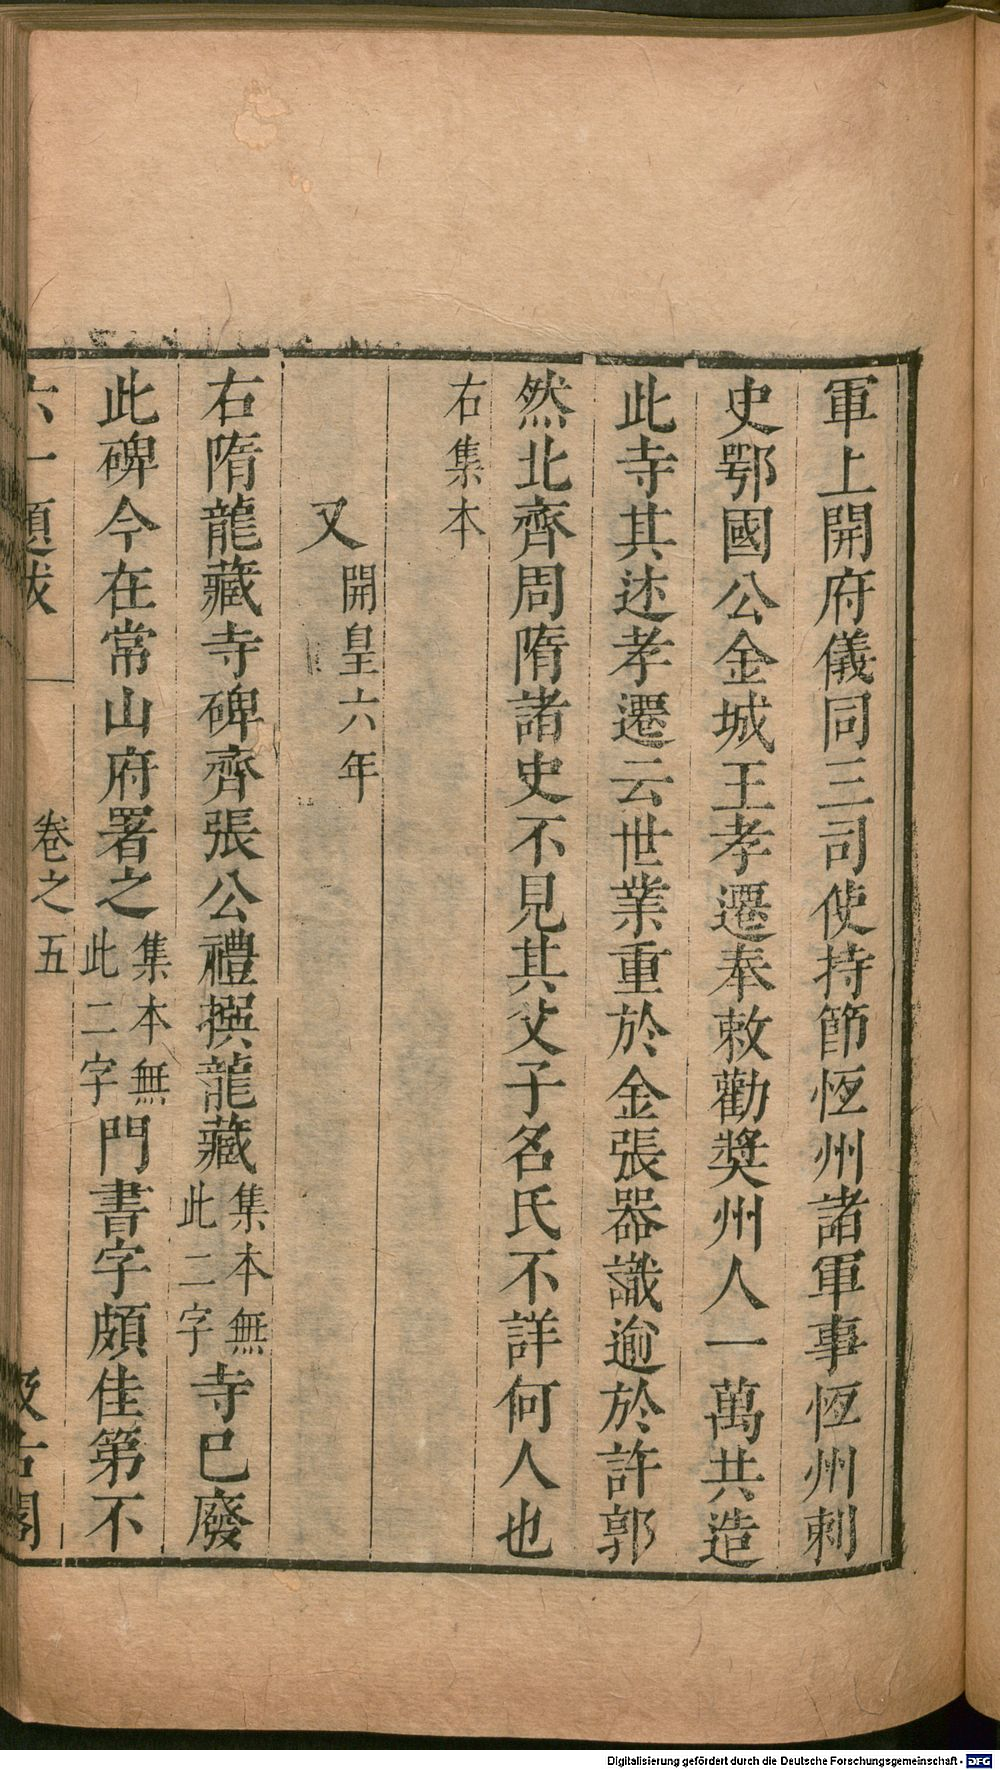 軍上開府儀同三司使持節恆州諸軍事恆州刺
史鄂國公金城王孝遷奉敕勸奬州人一萬共造
此寺其述孝遷云世業重於金張器識逾於許郭
然北齊周隋諸史不見其父子名氏不詳何人也
右集本
又開皇六年
右隋龍藏寺碑齊張公禮撰龍藏集本無此二字寺已廢
此碑今在常山府署之集本無此二字門書字頗佳第不
六一題跋 卷之五 汲古閣
Digitalisierung gefördert durch die Deutsche Forschungsgemeinschaft - DFG